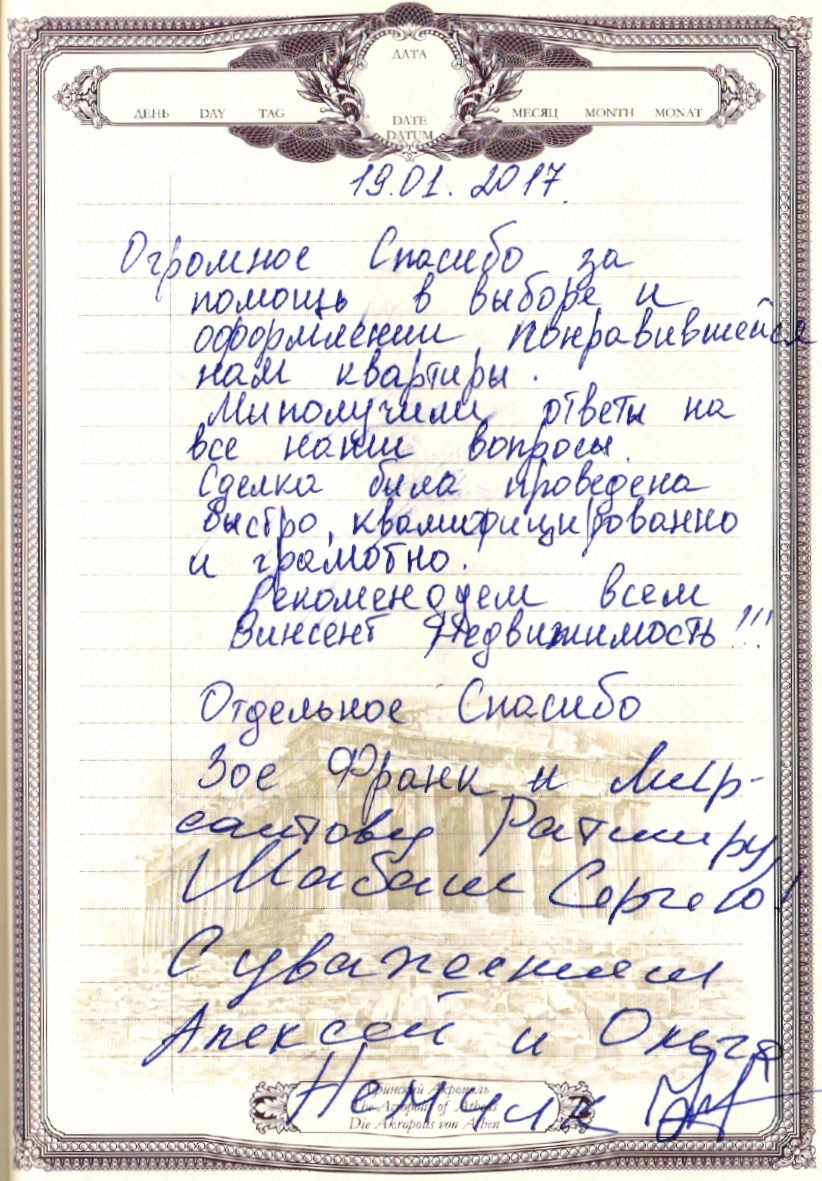 ДАТА
ДЕНЬ DAY TAG
МЕСЯЦ MONTH MONAT
DATE
DATUM
19.01.2017.
Огромное Спасибо за
помощь в выборе и
оформлении понравившейся
нам квартиры.
Мы получили ответы на
все наши вопросы.
Сделка была проведена
быстро, квалифицированно
и грамотно.
Рекомендуем всем
Винсент Недвижимость!!!
Отдельное Спасибо
Зое Франк и Мир-
саитову Ратмиру,
Шабаш Сергею!
С уважением
Алексей и Ольга
Афинский Акрополь
The Acropolis of Athens
Die Akropolis von Athen